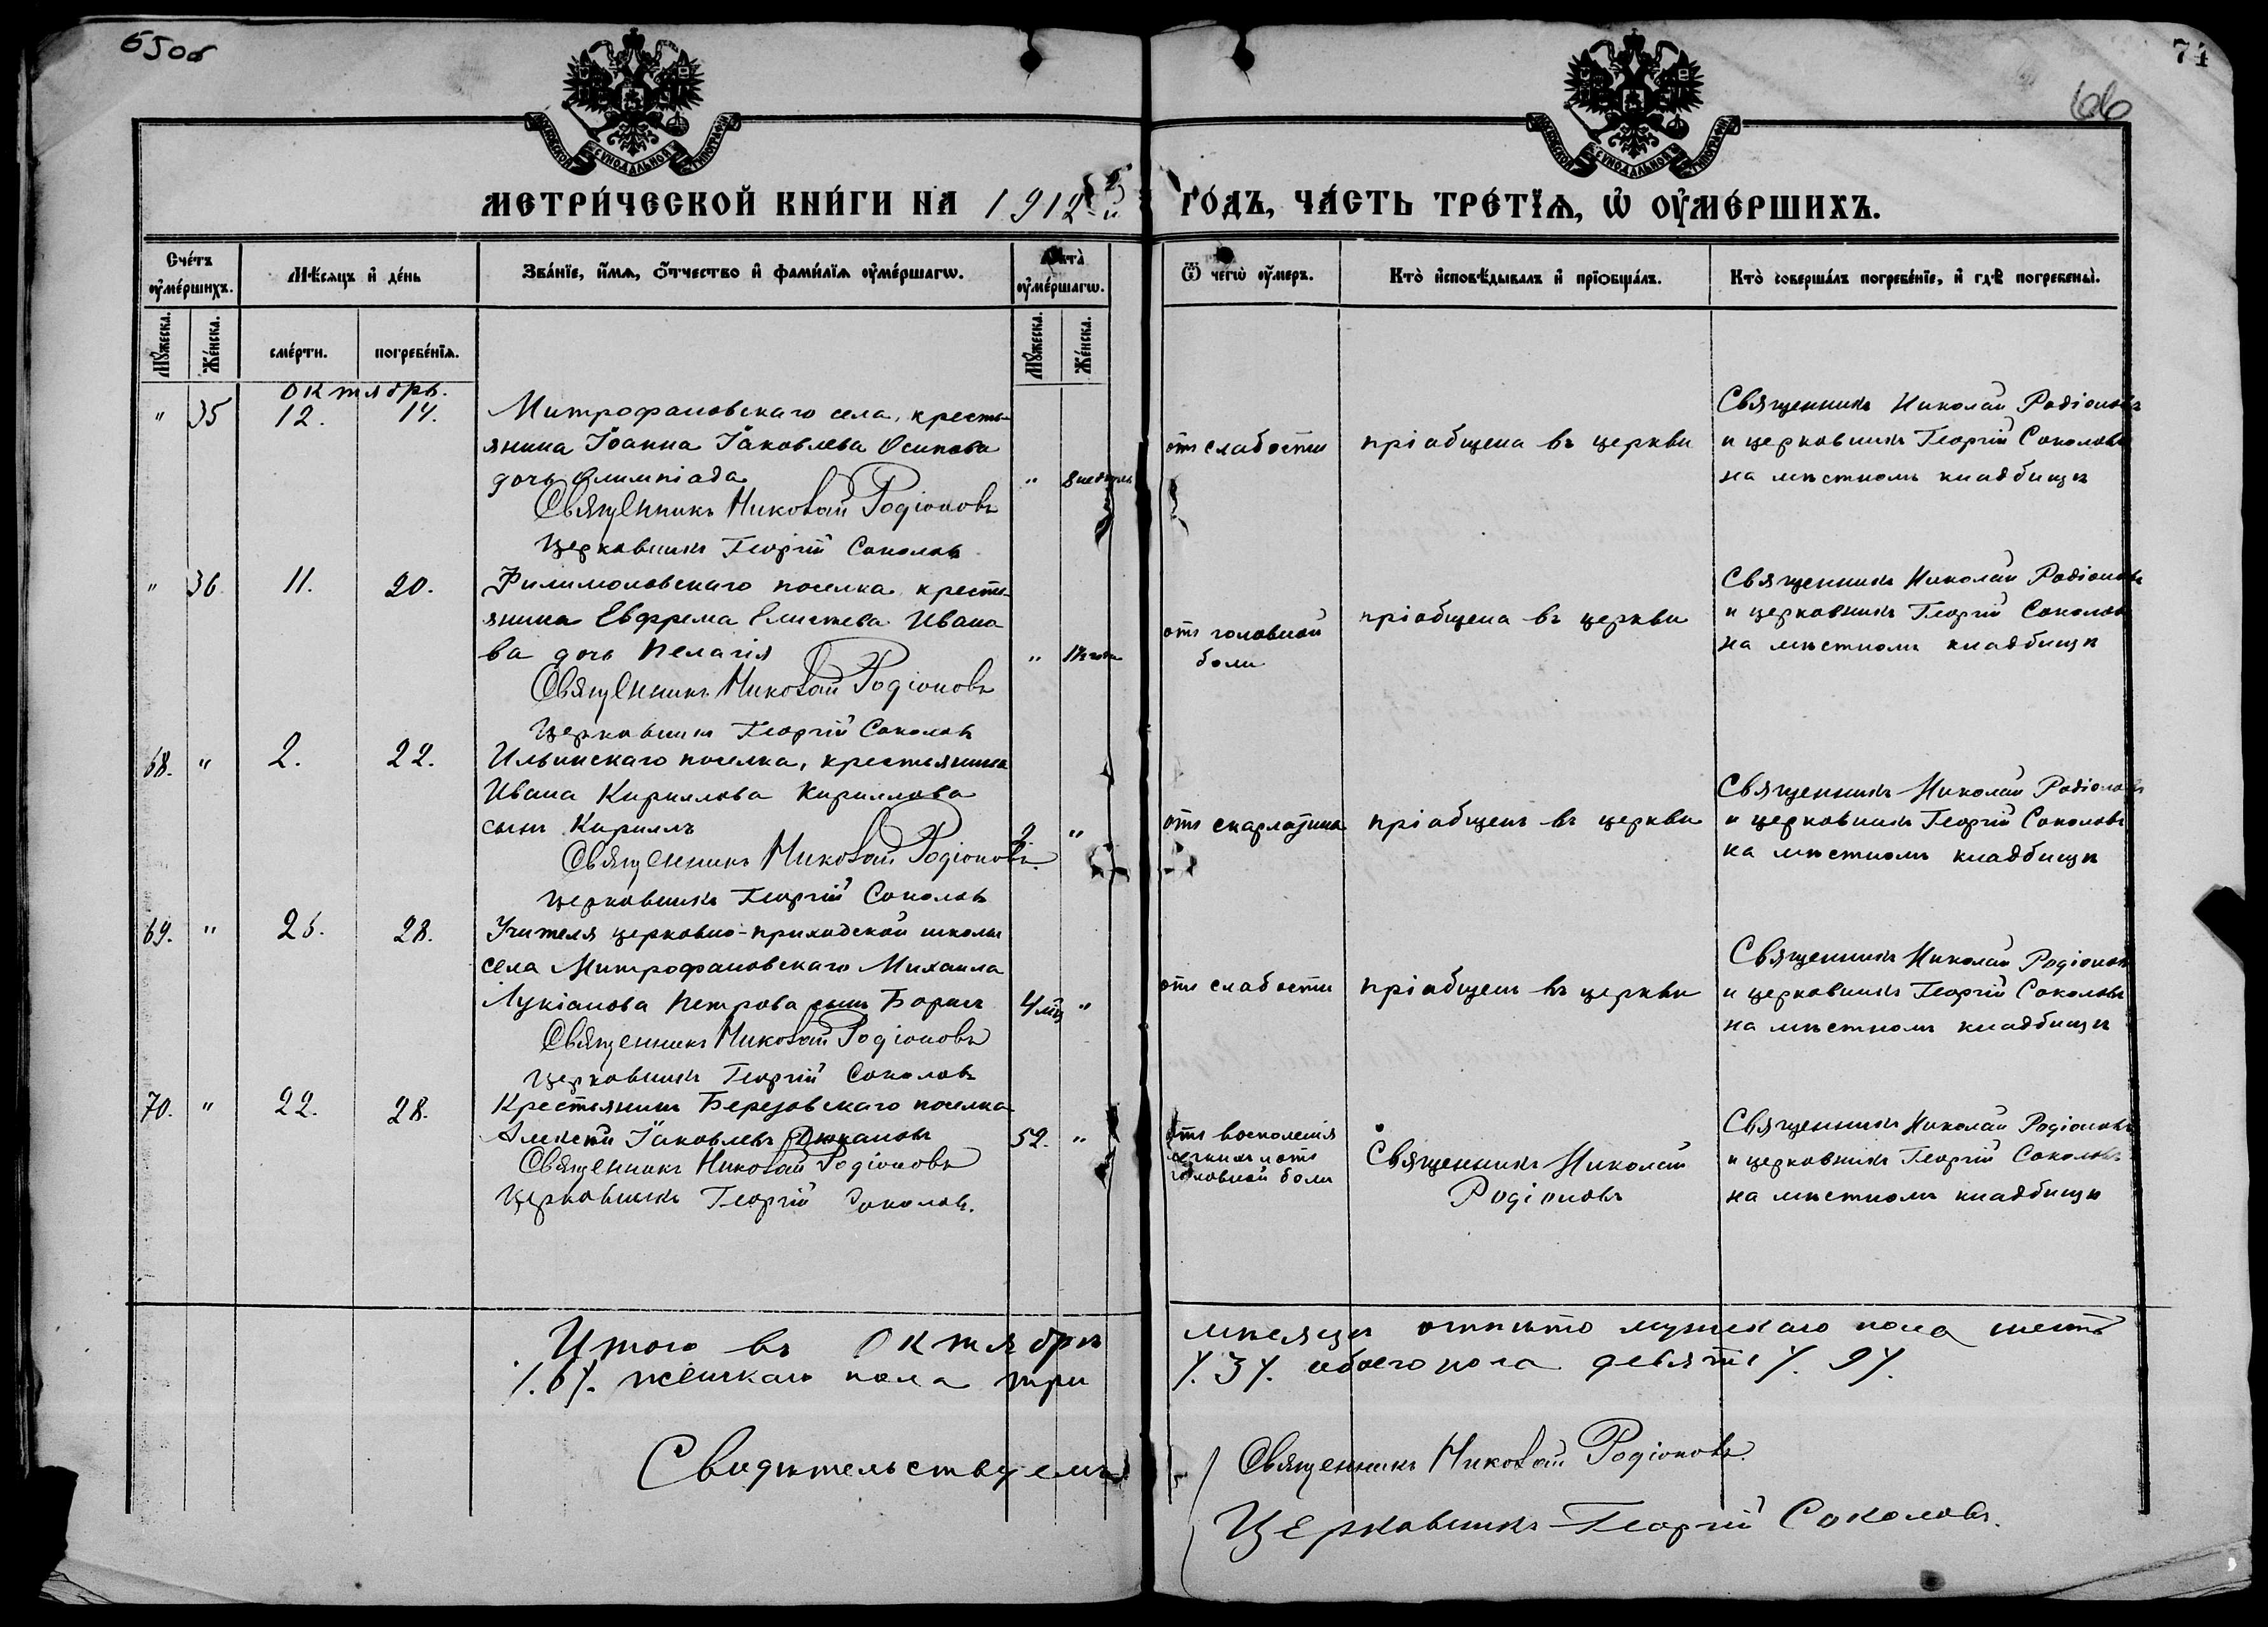 65об
74
66
МОСКОВСКОЙ СѴНОДАЛЬНОЙ ТИПОГРАФІИ
МОСКОВСКОЙ СѴНОДАЛЬНОЙ ТИПОГРАФІИ
МЕТРИ́ЧЕСКОЙ КНИ́ГИ НА 1912й ГО́ДЪ, ЧА́СТЬ ТРЕ́ТЇѦ, Ѡ҆ ОУ҆МЕ́РШИХЪ.
Сче́тъ оу҆ме́ршихъ.
Мѣ́сяцъ и҆ де́нь
Зва́нїе, и҆́мѧ, о҆́тчество и҆ фами́лїѧ оу҆ме́ршагѡ.
Лѣта̀ оу҆ме́ршагѡ.
Ѿ чегѡ̀ оу҆́меръ.
Кто̀ и҆сповѣ́дывалъ и҆ прїѡбща́лъ.
Кто̀ соверша́лъ погребе́нїе, и҆ гдѣ̀ погребены̀.
Мꙋ́жеска.
Же́нска.
сме́рти.
погребе́нїѧ.
Мꙋ́жеска.
Же́нска.
октябрь.
" 35 12. 14. Митрофановскаго села, кресть-
янина Іоанна Іаковлева Осипова
дочь Олимпіада " 8 недѣль
Священникъ Николай Родіоновъ
Церковникъ Георгій Соколовъ
отъ слабости
пріобщена въ церкви
Священникъ Николай Родіоновъ
и церковникъ Георгій Соколовъ
на мѣстномъ кладбищѣ
" 36. 11. 20. Филимоновскаго поселка кресть-
янина Евфрема Елисѣева Ивано
ва дочь Пелагія "
Священникъ Николай Родіоновъ
Церковникъ Георгій Соколовъ
отъ головной
боли
пріобщена въ церкви
Священникъ Николай Родіоновъ
и церковникъ Георгій Соколовъ
на мѣстномъ кладбищѣ
68. " 2. 22. Ильинскаго поселка, крестьянина
Ивана Кириллова Кириллова
сынъ Кириллъ "
Священникъ Николай Родіоновъ
Церковникъ Георгій Соколовъ
отъ скарлатина
пріобщенъ въ церкви
Священникъ Николай Родіоновъ
и церковникъ Георгій Соколовъ
на мѣстномъ кладбищѣ
69. " 26. 28. Учителя церковно-приходской школы
села Митрофановскаго Михаила
Лукіанова Петрова сынъ Борисъ 4 мѣ "
Священникъ Николай Родіоновъ
Церковникъ Георгій Соколовъ
отъ слабости
пріобщенъ въ церкви
Священникъ Николай Родіоновъ
и церковникъ Георгій Соколовъ
на мѣстномъ кладбищѣ
70. " 22. 28. Крестьянинъ Березовскаго поселка
Алексѣй Іаковлевъ 52. "
Священникъ Николай Родіоновъ
Церковникъ Георгій Соколовъ.
отъ
и отъ
головной боли
Священникъ Николай
Родіоновъ
Священникъ Николай Родіоновъ
и церковникъ Георгій Соколовъ
на мѣстномъ кладбищѣ
Итого въ Октябрѣ мѣсяцѣ отпѣто мужскаго пола шесть
/.6/. женскаго пола три /.3/. обоего пола девять /.9/.
Свидѣтельствуемъ
Священникъ Николай Родіоновъ.
Церковникъ Георгій Соколовъ.